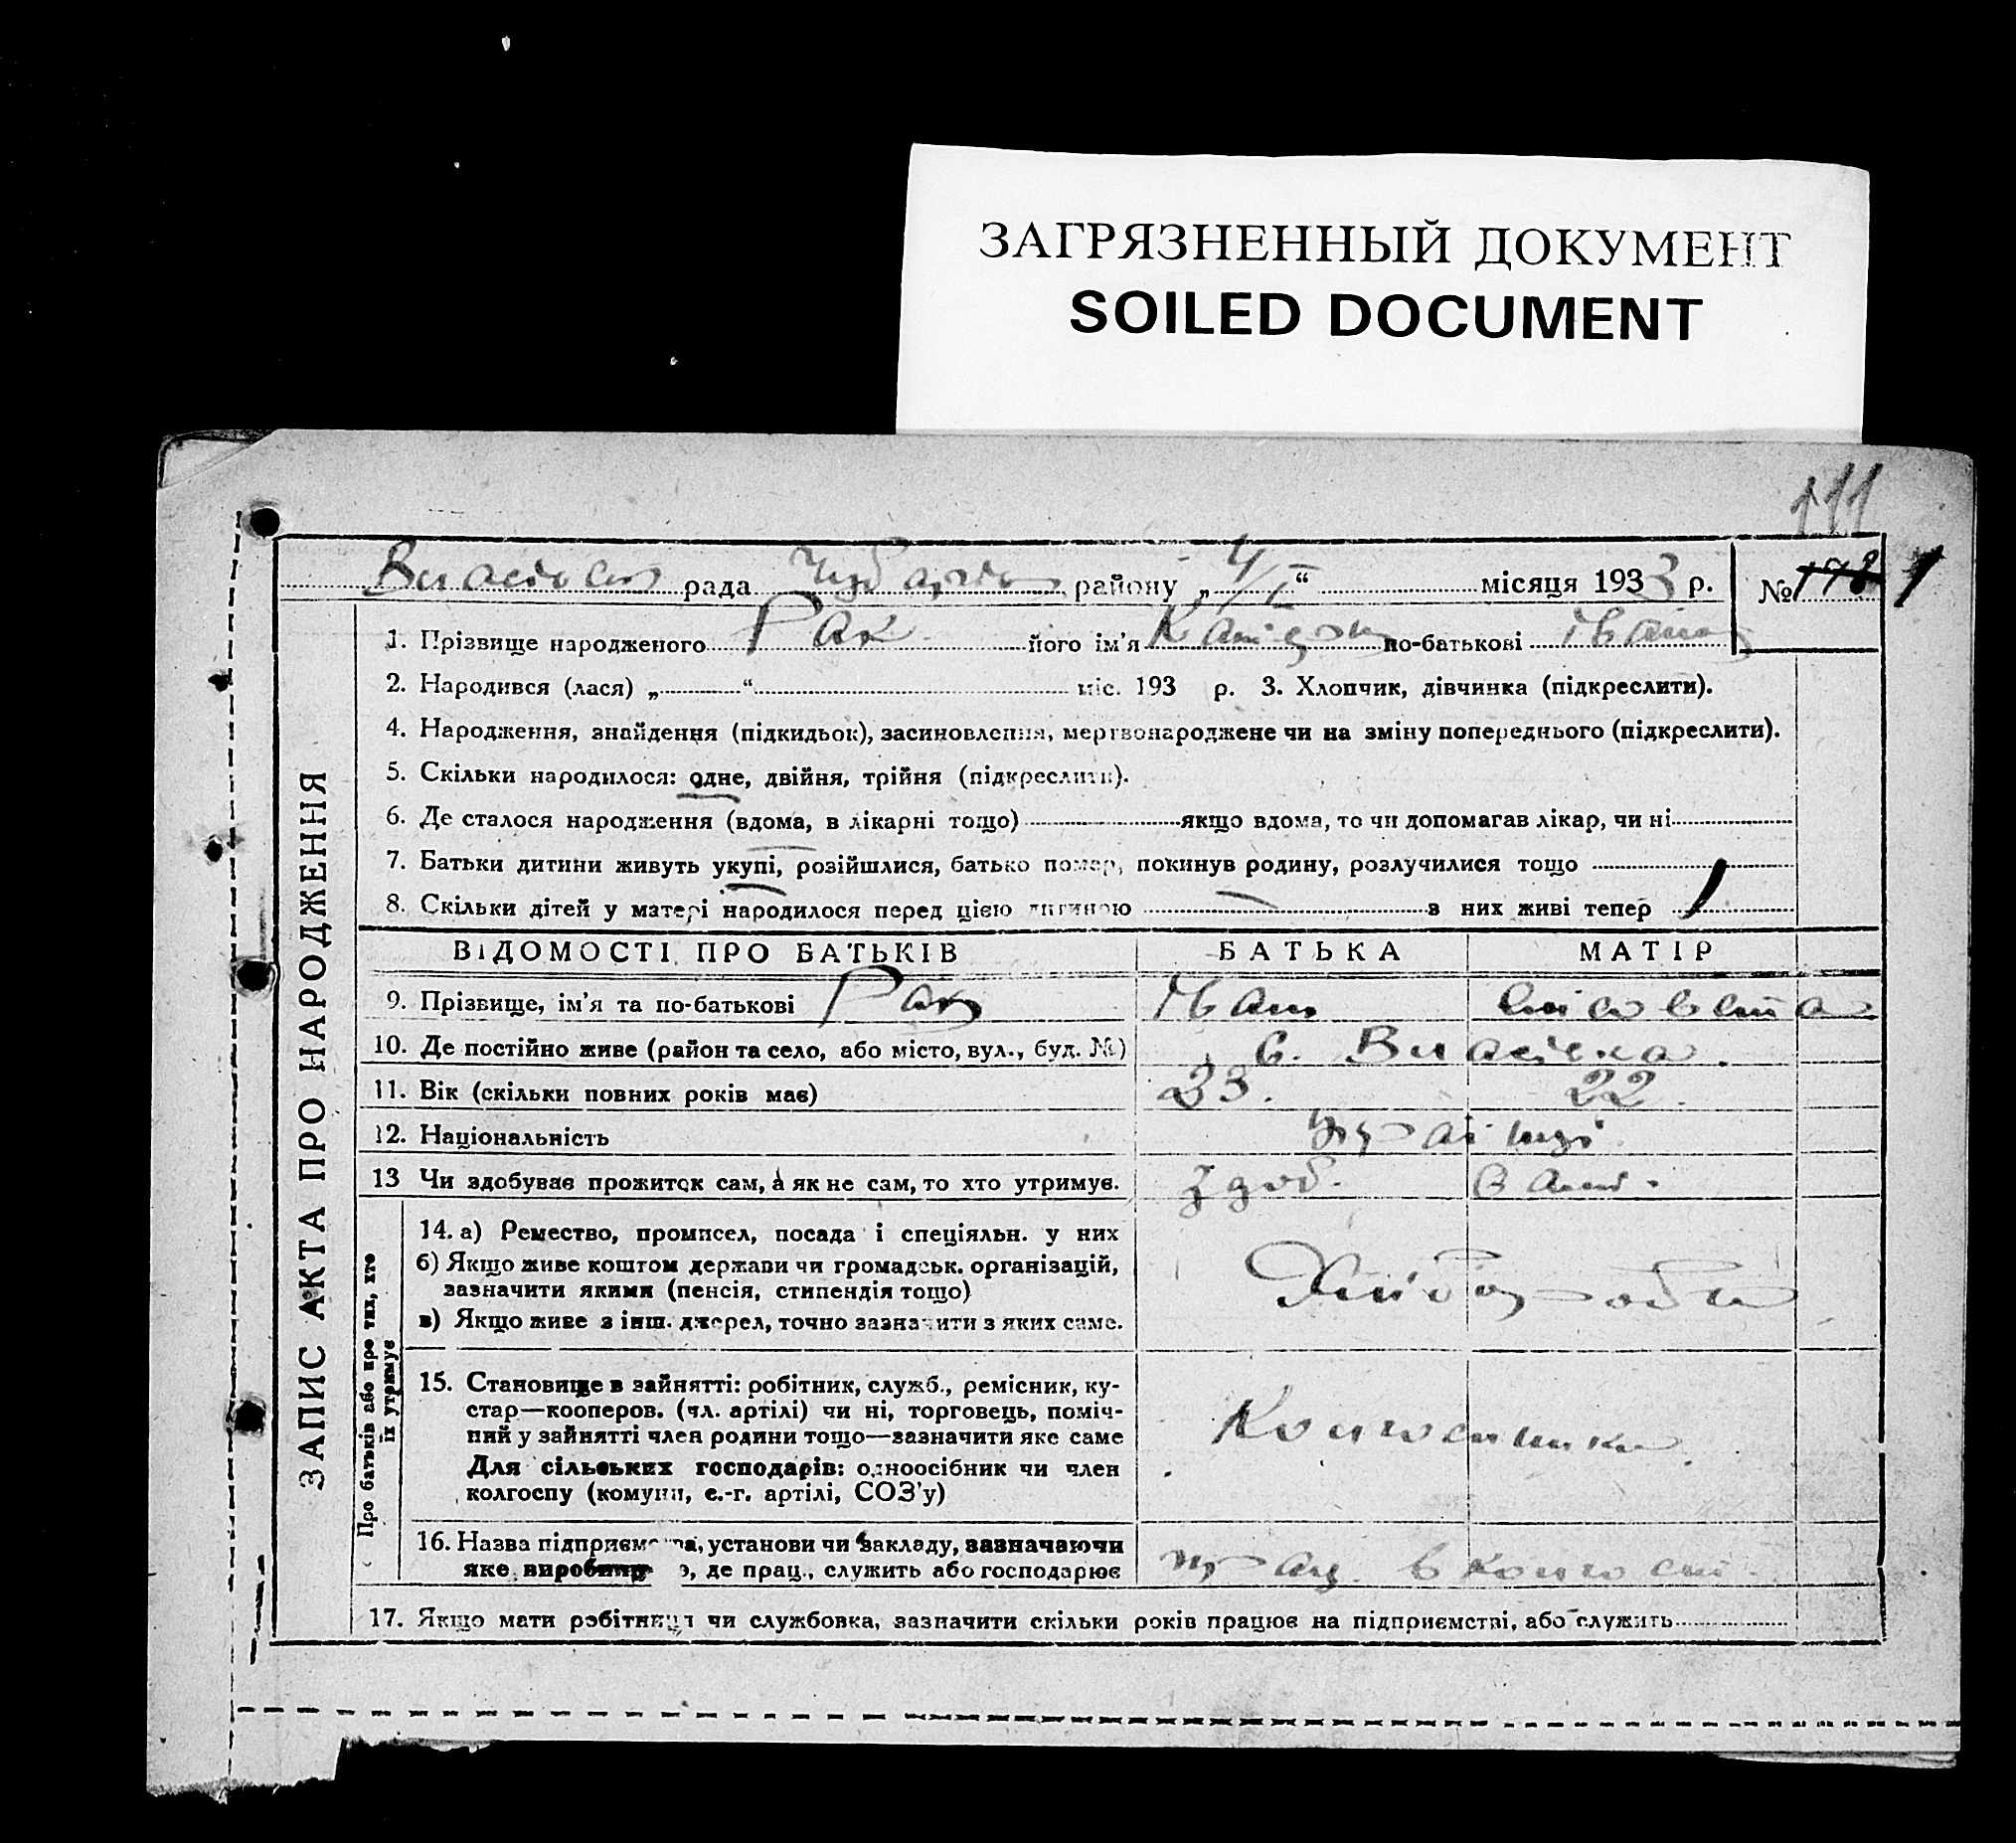 ЗАГРЯЗНЕННЫЙ ДОКУМЕНТ
SOILED DOCUMENT
111
рада району „4/I“ місяця 1933 р. № 178 1
ЗАПИС АКТА ПРО НАРОДЖЕННЯ
1. Прізвище народженого Рак його ім'я по-батькові Иван
2. Народився (лася) „ “ міс. 193 р. 3. Хлопчик, дівчинка (підкреслити).
4. Народження, знайдення (підкидьок), засиновлення, мертвонароджене чи на зміну попереднього (підкреслити).
5. Скільки народилося: одне, двійня, трійня (підкреслити).
6. Де сталося народження (вдома, в лікарні тощо) якщо вдома, то чи допомагав лікар, чи ні
7. Батьки дитини живуть укупі, розійшлися, батько помер, покинув родину, розлучилися тощо
8. Скільки дітей у матері народилося перед цією дитиною — з них живі тепер 1
ВІДОМОСТІ ПРО БАТЬКІВ БАТЬКА МАТІР
9. Прізвище, ім'я та по-батькові Рак Иван
10. Де постійно живе (район та село, або місто, вул., буд. №) с.
11. Вік (скільки повних років має) 23. 22.
12. Національність Українці
13 Чи здобував прожиток сам, а як не сам, то хто утримує. Здоб.
Про батьків або про тих, хто їх утримує
14. а) Ремество, промисел, посада і спеціяльн. у них
б) Якщо живе коштом держави чи громадськ. організацій,
зазначити якими (пенсія, стипендія тощо)
в) Якщо живе з інш. джерел, точно зазначити з яких саме.
Хлібороби
15. Становище в зайнятті: робітник, служб., ремісник, ку-
стар—кооперов. (чл. артілі) чи ні, торговець, поміч-
ний у зайнятті член родини тощо—зазначити яке саме
Для сільських господарів: одноосібник чи член
колгоспу (комуни, с.-г. артілі, СОЗ'у)
16. Назва підприємства, установи чи закладу, зазначаючи
яке виробництво, де прац., служить або господарює
17. Якщо мати робітниця чи службовка, зазначити скільки років працює на підприємстві, або служить